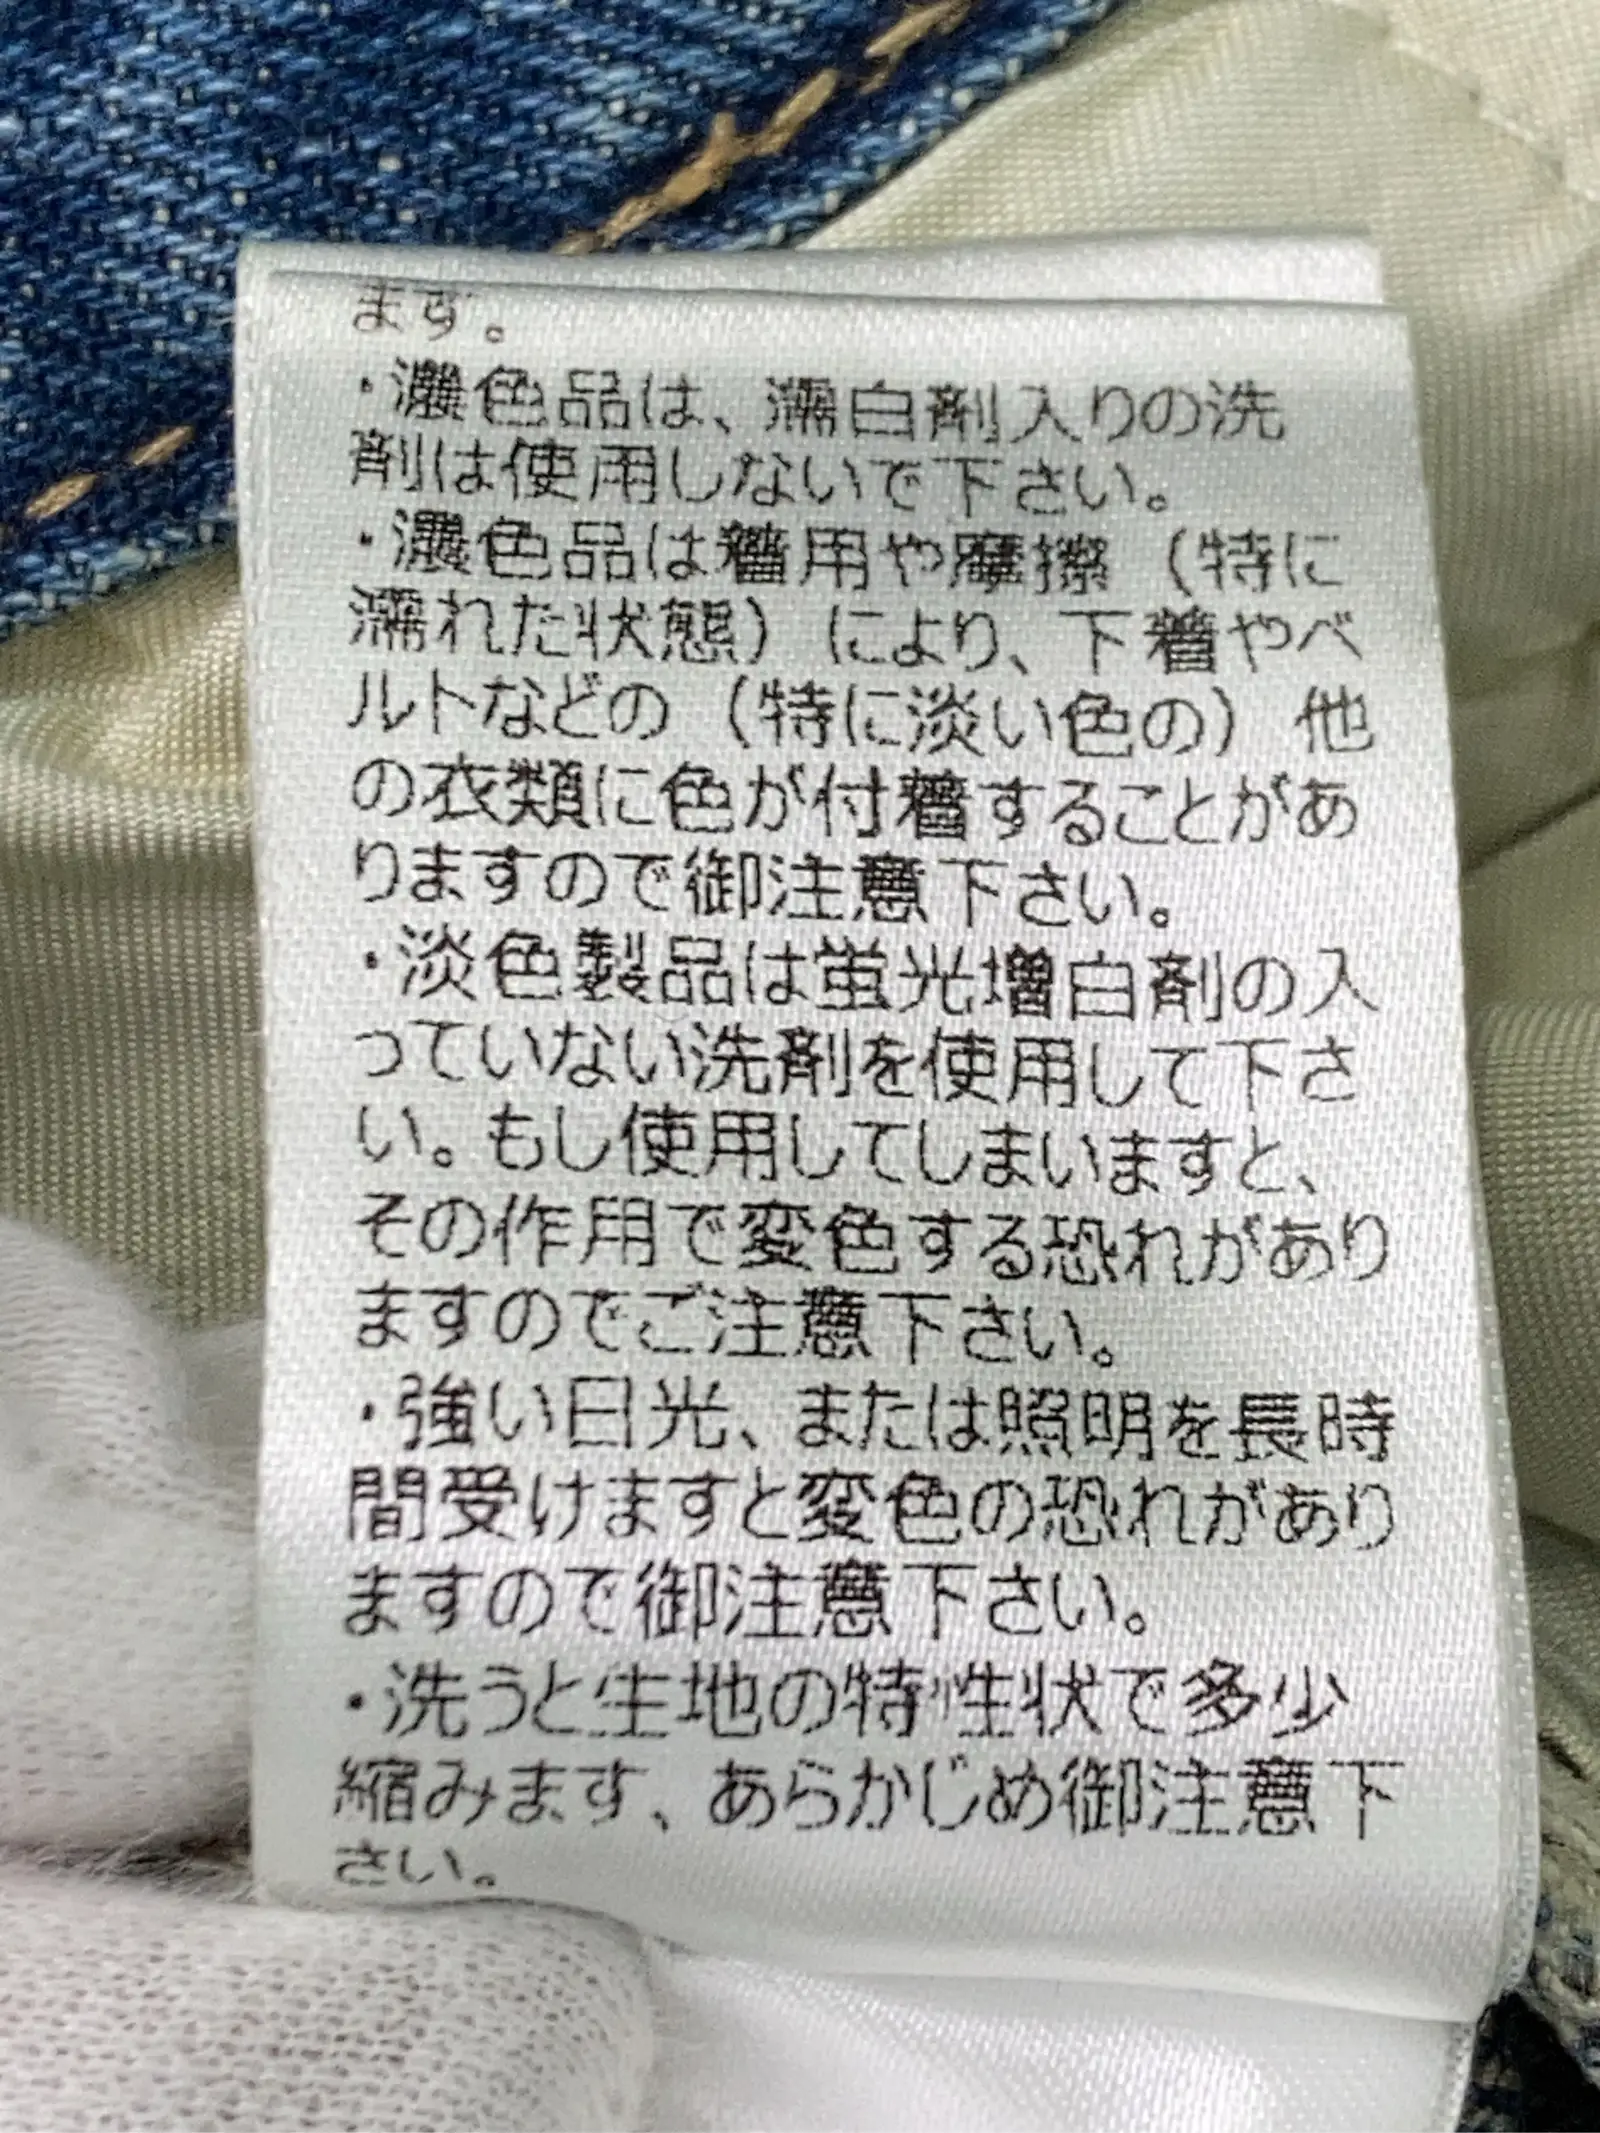 ます。
・濃色品は、漂白剤入りの洗
剤は使用しないで下さい。
・濃色品は着用や摩擦（特に
濡れた状態）により、下着やベ
ルトなどの（特に淡い色の）他
の衣類に色が付着することがあ
りますので御注意下さい。
・淡色製品は蛍光増白剤の入
っていない洗剤を使用して下さ
い。もし使用してしまいますと、
その作用で変色する恐れがあり
ますのでご注意下さい。
・強い日光、または照明を長時
間受けますと変色の恐れがあり
ますので御注意下さい。
・洗うと生地の特性状で多少
縮みます、あらかじめ御注意下
さい。